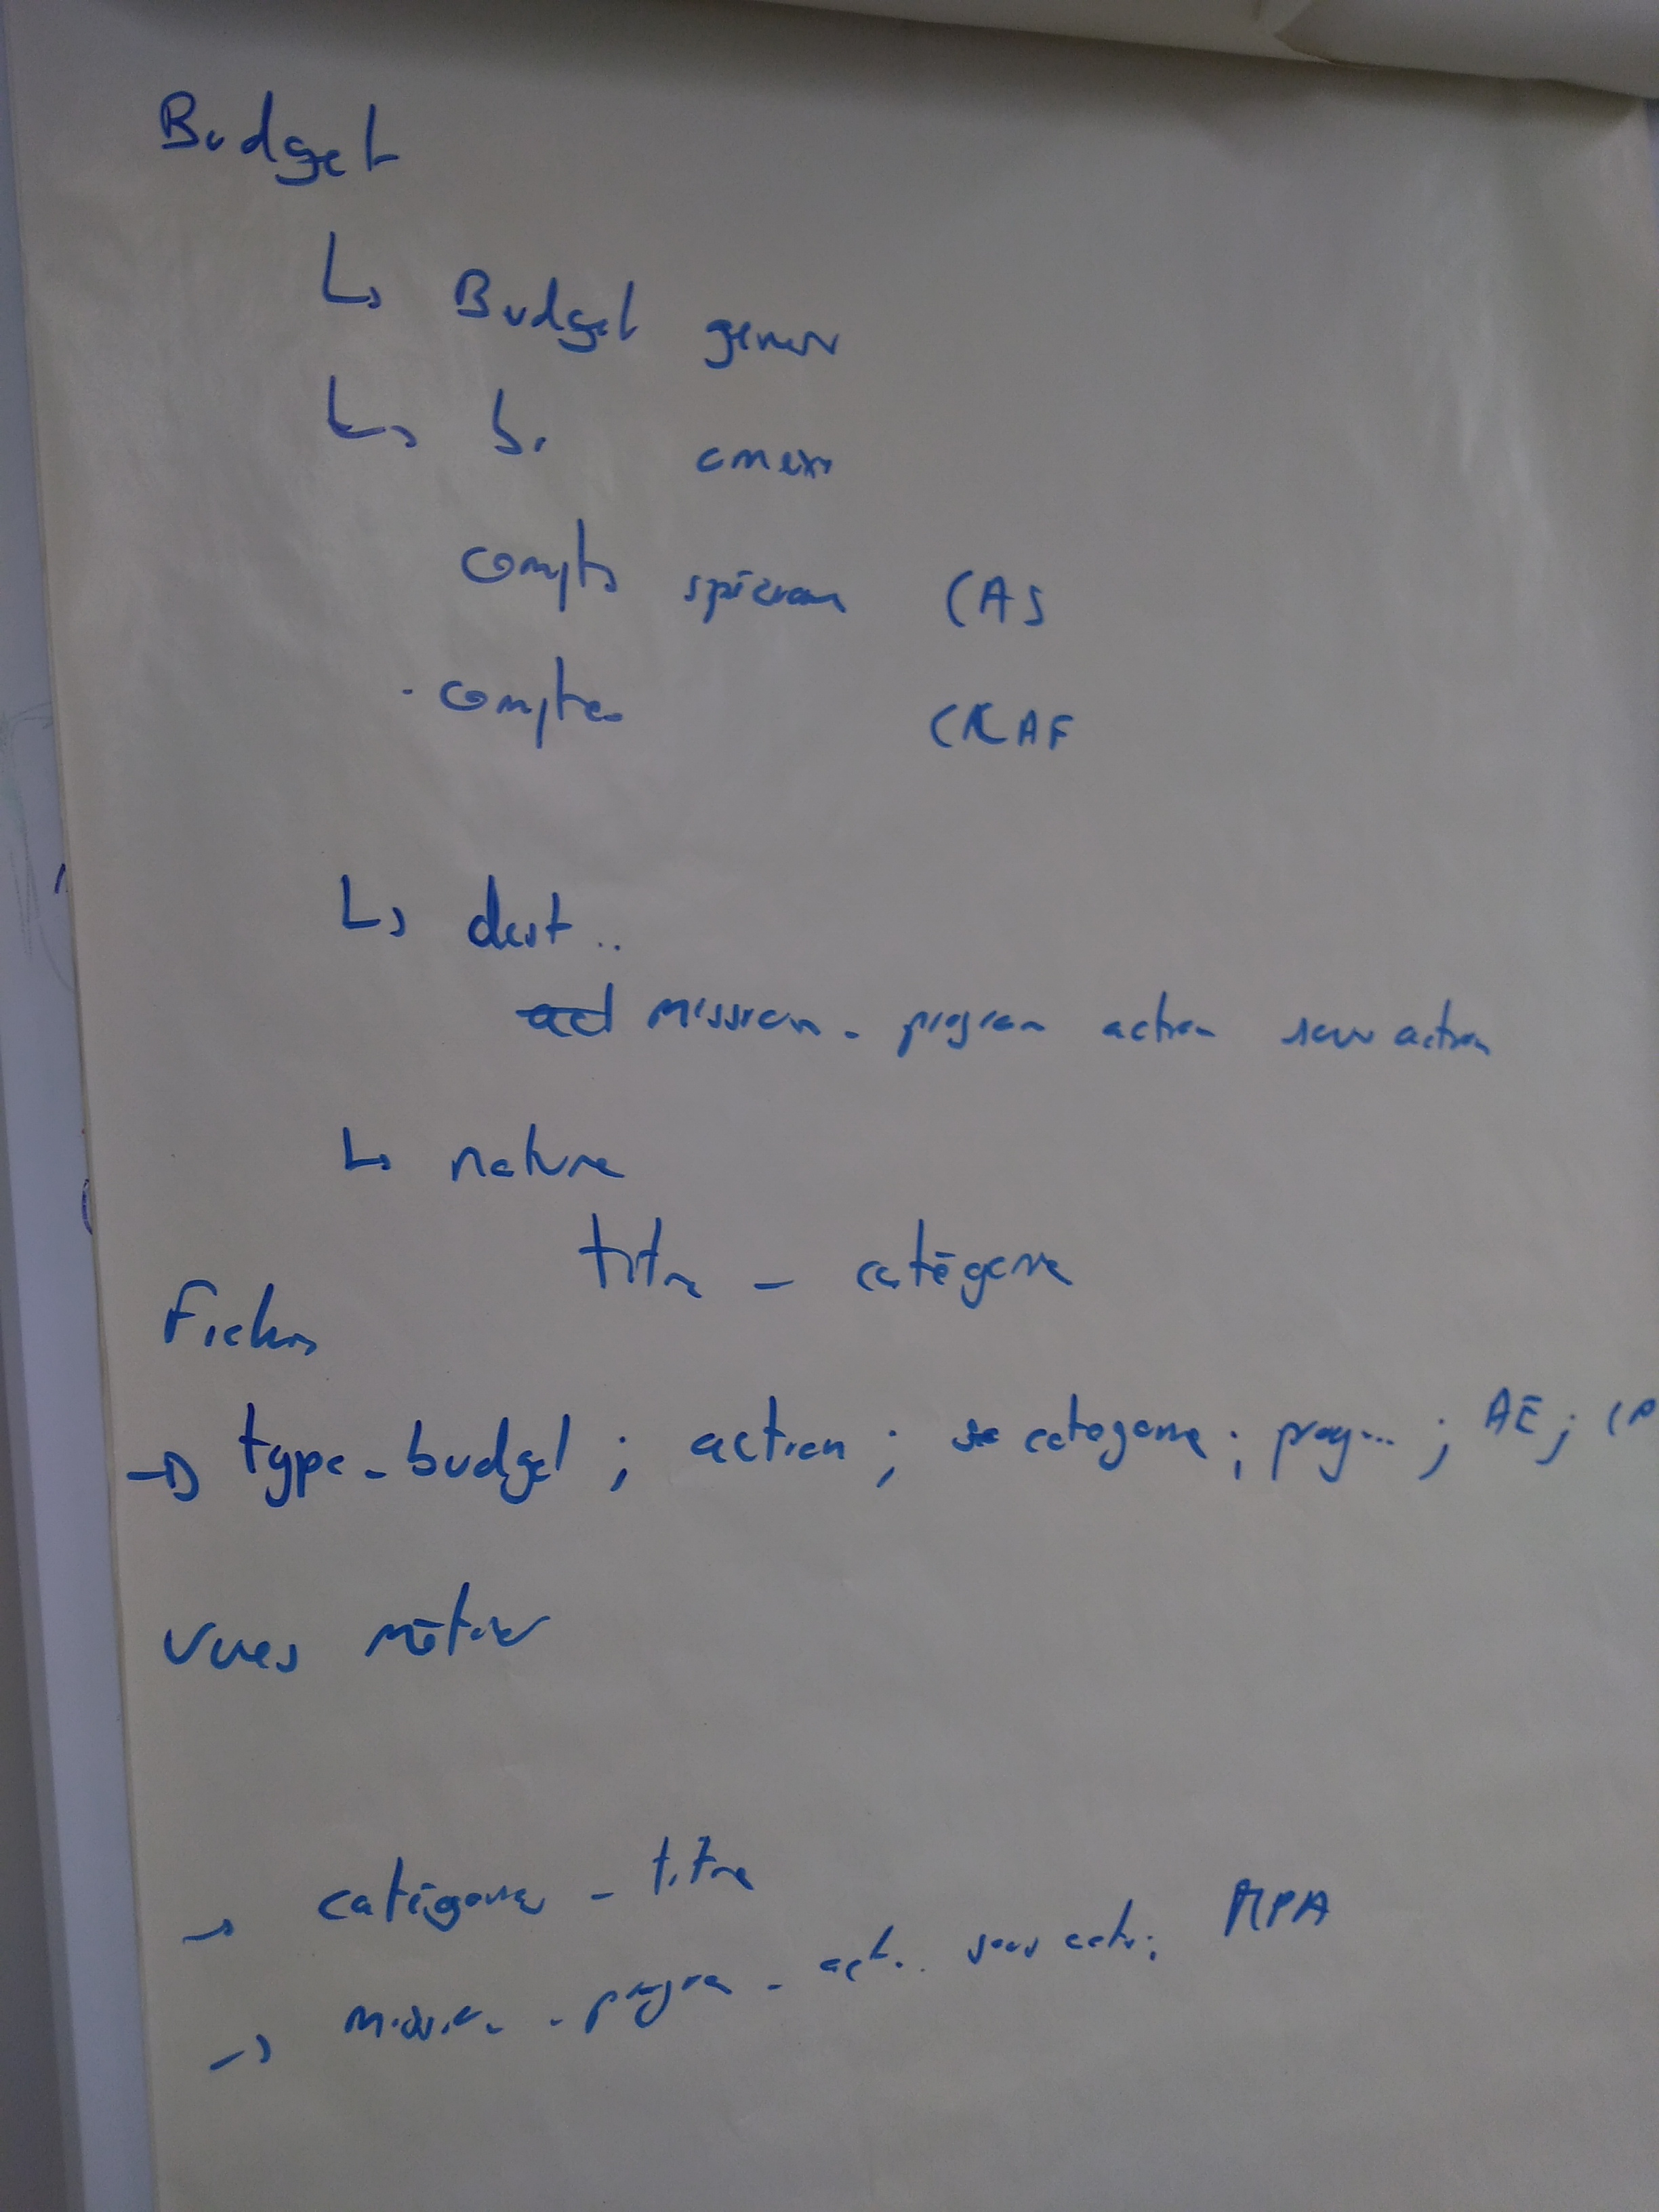 Budget
↳ Budget gener
↳ b. annexe
compts spéciaux CAS
- comptes
↳ dest..
mission - program action sous action
↳ nature
titre - catégorie
Fichiers
→ type-budget ; action ; categorie ; prog... ; AE ; CP
Vues métier
→ catégorie - titre
→ mission - progra - act.. sous acti. MPA